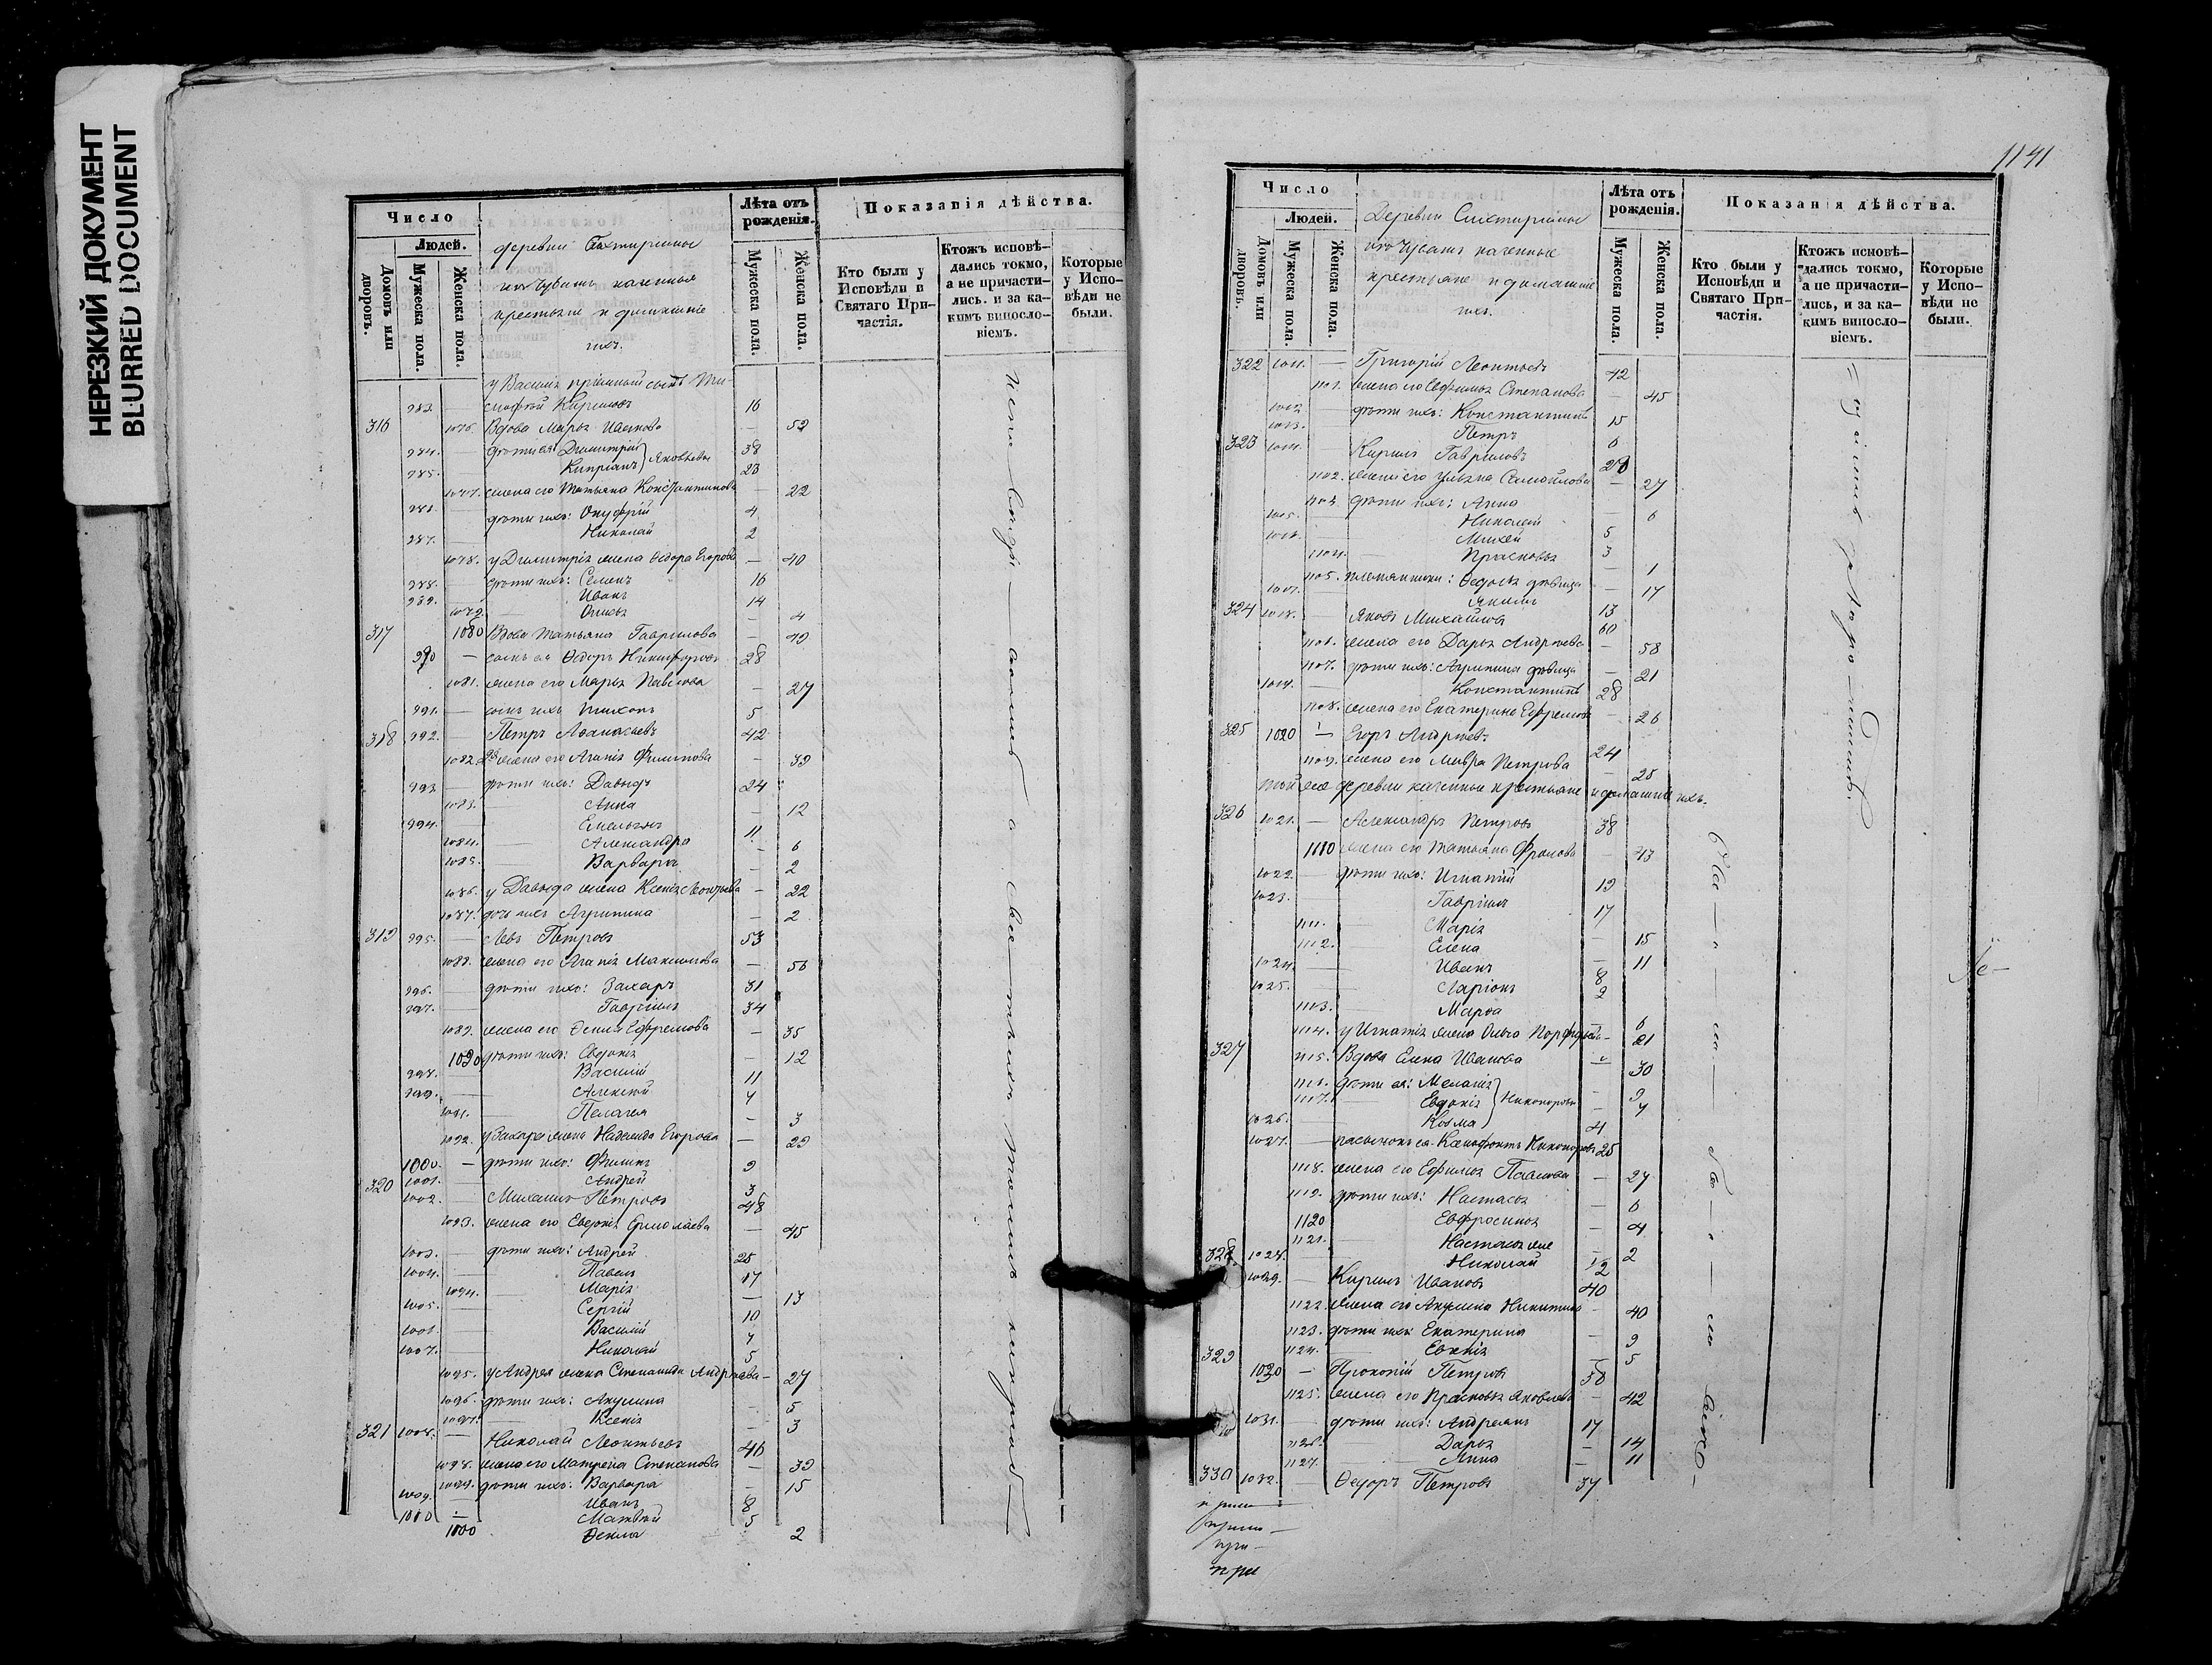 НЕРЕЗКИЙ ДОКУМЕНТ
BLURRED DOCUMENT
Число
Людей.
Домовъ или дворовъ.
Мужеска пола.
Женска пола.
деревни
изъ чувашъ казенные
крестьяне и домашніе
ихъ.
Лѣта отъ рожденія.
Мужеска пола.
Женска пола.
Показанія дѣйства.
Кто были у Исповѣди и Святаго Причастія.
Ктожъ исповѣдались токмо, а не причастились. и за какимъ винословіемъ.
Которые у Исповѣди не были.
у Василія пріемный сынъ Ти-
983. — Кириловъ 16
316 1076. Вдова Марья Иванова — 52
984. — дѣти ея: Димитрій 38
985. — Кипріанъ } Яковлевы 23
1077. жена его Татьяна Константинова — 22
986. — дѣти ихъ: Онуфрій 4
987. — Николай 2
1078. у Димитрія жена Ѳедора Егорова — 40
988. — дѣти ихъ: Семенъ 16
989. Иванъ 14
1079. — — 4
317 1080 Вдова Татьяна Гаврилова — 49
990 — сынъ ея Ѳедоръ Никифоровъ 28
1081. жена его Марья Павлова — 27
991. — сынъ ихъ Тихонъ 5
318 992. — Петръ Аѳанасьевъ 42
1082. жена его Агапія Филипова — 39
993 — дѣти ихъ: Давыдъ 24
1083. — Анна — 12
994. Емельянъ 11
1084. — Александра — 6
1085. — Варвара — 2
1086. у Давыда жена Ксенія Леонтьева — 22
1087. дочь ихъ Агрипина — 2
319 995. — Левъ Петровъ 53
1088. жена его Агапія Максимова — 56
996. — дѣти ихъ: Захаръ 31
997. — Гавріилъ 34
1089. жена его Ѳекла Ефремова — 35
1090 дѣти ихъ: Евдокія — 12
998. — Василій 11
999. — Алексѣй 7
1091. — Пелагея — 3
1092. у Захара жена Надежда Егорова — 29
1000. — дѣти ихъ: Филипъ 9
1001. — Андрей 3
320 1002. — Михаилъ Петровъ 48
1093. жена его Евдокія Ермолаева — 45
1003. — дѣти ихъ: Андрей 25
1004. — Павелъ 17
1094. — Марія — 13
1005. Сергій 10
1006. — Василій 7
1007. — Николай 5
1095. у Андрея жена Степанида Андреева — 27
1096. дѣти ихъ: Акулина — 5
1097. — Ксенія — 3
321 1008. — Николай Леонтьевъ 46
1098. жена его Матрена Степанова — 39
1099. дѣти ихъ: Варвара — 15
1009. — Иванъ 8
1010 — Матвѣй 5
1100 Ѳекла 2
1141
Число
Людей.
Домовъ или дворовъ.
Мужеска пола.
Женска пола.
Деревни
изъ Чувашъ казенные
крестьяне и домашніе
ихъ.
Лѣта отъ рожденія.
Мужеска пола.
Женска пола
Показанія дѣйства.
Кто были у Исповѣди и Святаго Причастія.
Ктожъ исповѣдались токмо, а не причастились, и за какимъ винословіемъ.
Которые у Исповѣди не были.
322 1011. — Григорій Леонтьевъ 42
1101. жена его Евфимья Степанова — 45
1012. — дѣти ихъ: Константинъ 15
1013. Петръ 6
323 1014. Кирилъ Гавриловъ 29
1102. жена его Ульяна Самойлова — 27
1103. дѣти ихъ: Анна — 6
1015. — Николай 5
1016. Михей 3
1104. Прасковья — 1
1105. племянники: Ѳедосья дѣвица — 17
1017. Якимъ 13
324 1018. — Яковъ Михайловъ 60
1106. жена его Дарья Андреева — 58
1107. дѣти ихъ: Агрипина дѣвица — 21
1019. — Константинъ 28
1108. жена его Екатерина Ефремова — 26
325 1020 — Егоръ Андреевъ 24
1109. жена его Мавра Петрова — 25
той же деревни казенные крестьяне и домашніе ихъ.
326 1021. — Александръ Петровъ 38
1110 жена его Татьяна Фролова — 43
1022. — дѣти ихъ: Игнатій 19
1023. — Гавріилъ 17
1111. — Марія — 15
1112. — Елена — 11
1024. — Иванъ 8
1025. Ларіонъ 2
1113. Марѳа — 6
1114. у Игнатія жена Ольга — 21
327 1115. Вдова Елена Иванова — 30
1116. дѣти ея: Меланія — 9
1117. Евдокія } Никоноровы — 7
1026. Козма 4
1027. — пасынокъ ея Ксенофонтъ Никоноровъ 25
1118. жена его Ефимья Павлова — 27
1119. дѣти ихъ: Настасья — 6
1120 Евфросинья — 4
1121. Настасья же — 2
328. 1028. — Николай 12
1029. — Кирилъ Ивановъ 40
1122. жена его Акулина Никитина — 40
1123. дѣти ихъ Екатерина — 9
1124. — — 5
329 1030 — Прокопій Петровъ 38
1125. жена его Прасковья Яковлева — 42
1031. — дѣти ихъ: Андреянъ 17
1126. Дарья — 14
1127. Анна — 11
330 1032. — Ѳедоръ Петровъ 37